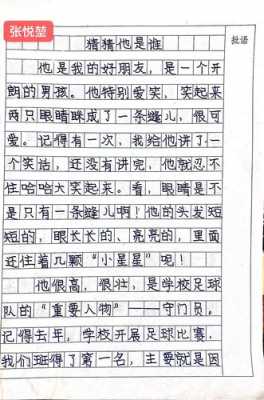 张悦堃
批语
猜猜他是谁
他是我的好朋友，是一个开
朗的男孩。他特别爱笑，笑起来
两只眼睛眯成了一条缝儿，很可
爱。记得有一次，我给他讲了一
个笑话，还没有讲完，他就忍不
住哈哈大笑起来。看，眼睛是不
是只有一条缝儿啊！他的头发短
短的，眼长长的、亮亮的，里面
还住着几颗“小星星”呢！
他很高，很壮，是学校足球
队的“重要人物”——守门员。
记得去年，学校开展足球比赛，
我们班得了第一名，主要就是因